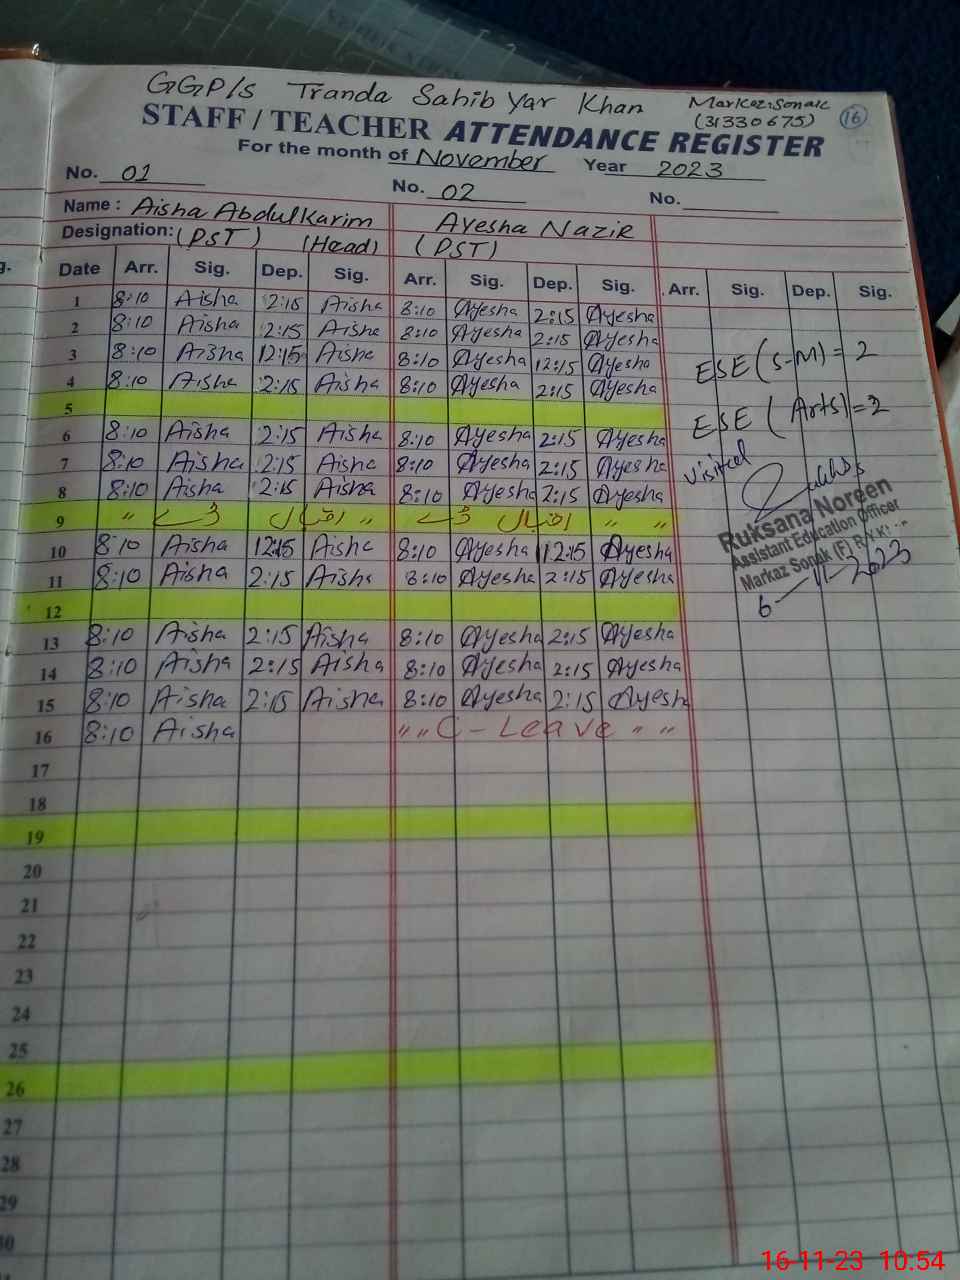 GGP/S Tranda Sahib Yar Khan Markaz:Sonak
(31330675) 16
STAFF / TEACHER ATTENDANCE REGISTER
For the month of November Year 2023
No. 01 No. 02 No.
Name : Aisha Abdulkarim Ayesha Nazir
Designation: (PST) (Head) (PST)
Date Arr. Sig. Dep. Sig. Arr. Sig. Dep. Sig. Arr. Sig. Dep. Sig.
1 8:10 Aisha 2:15 Aisha 8:10 Ayesha 2:15 Ayesha
2 8:10 Aisha 2:15 Aisha 8:10 Ayesha 2:15 Ayesha
3 8:10 Aisha 12:15 Aisha 8:10 Ayesha 12:15 Ayesha
ESE (S-M) = 2
4 8:10 Aisha 2:15 Aisha 8:10 Ayesha 2:15 Ayesha
5
ESE (Arts) = 2
6 8:10 Aisha 2:15 Aisha 8:10 Ayesha 2:15 Ayesha
7 8:10 Aisha 2:15 Aisha 8:10 Ayesha 2:15 Ayesha
Visited
8 8:10 Aisha 2:15 Aisha 8:10 Ayesha 2:15 Ayesha
9 " ڈے اقبال " ڈے اقبال " "
Ruksana Noreen
Assistant Education Officer
Markaz Sonak (F) R.Y.K
6-11-2023
10 8:10 Aisha 12:15 Aisha 8:10 Ayesha 12:15 Ayesha
11 8:10 Aisha 2:15 Aisha 8:10 Ayesha 2:15 Ayesha
12
13 8:10 Aisha 2:15 Aisha 8:10 Ayesha 2:15 Ayesha
14 8:10 Aisha 2:15 Aisha 8:10 Ayesha 2:15 Ayesha
15 8:10 Aisha 2:15 Aisha 8:10 Ayesha 2:15 Ayesh
16 8:10 Aisha " " C - Leave " "
17
18
19
20
21
22
23
24
25
26
27
28
29
30
16-11-23 10.54